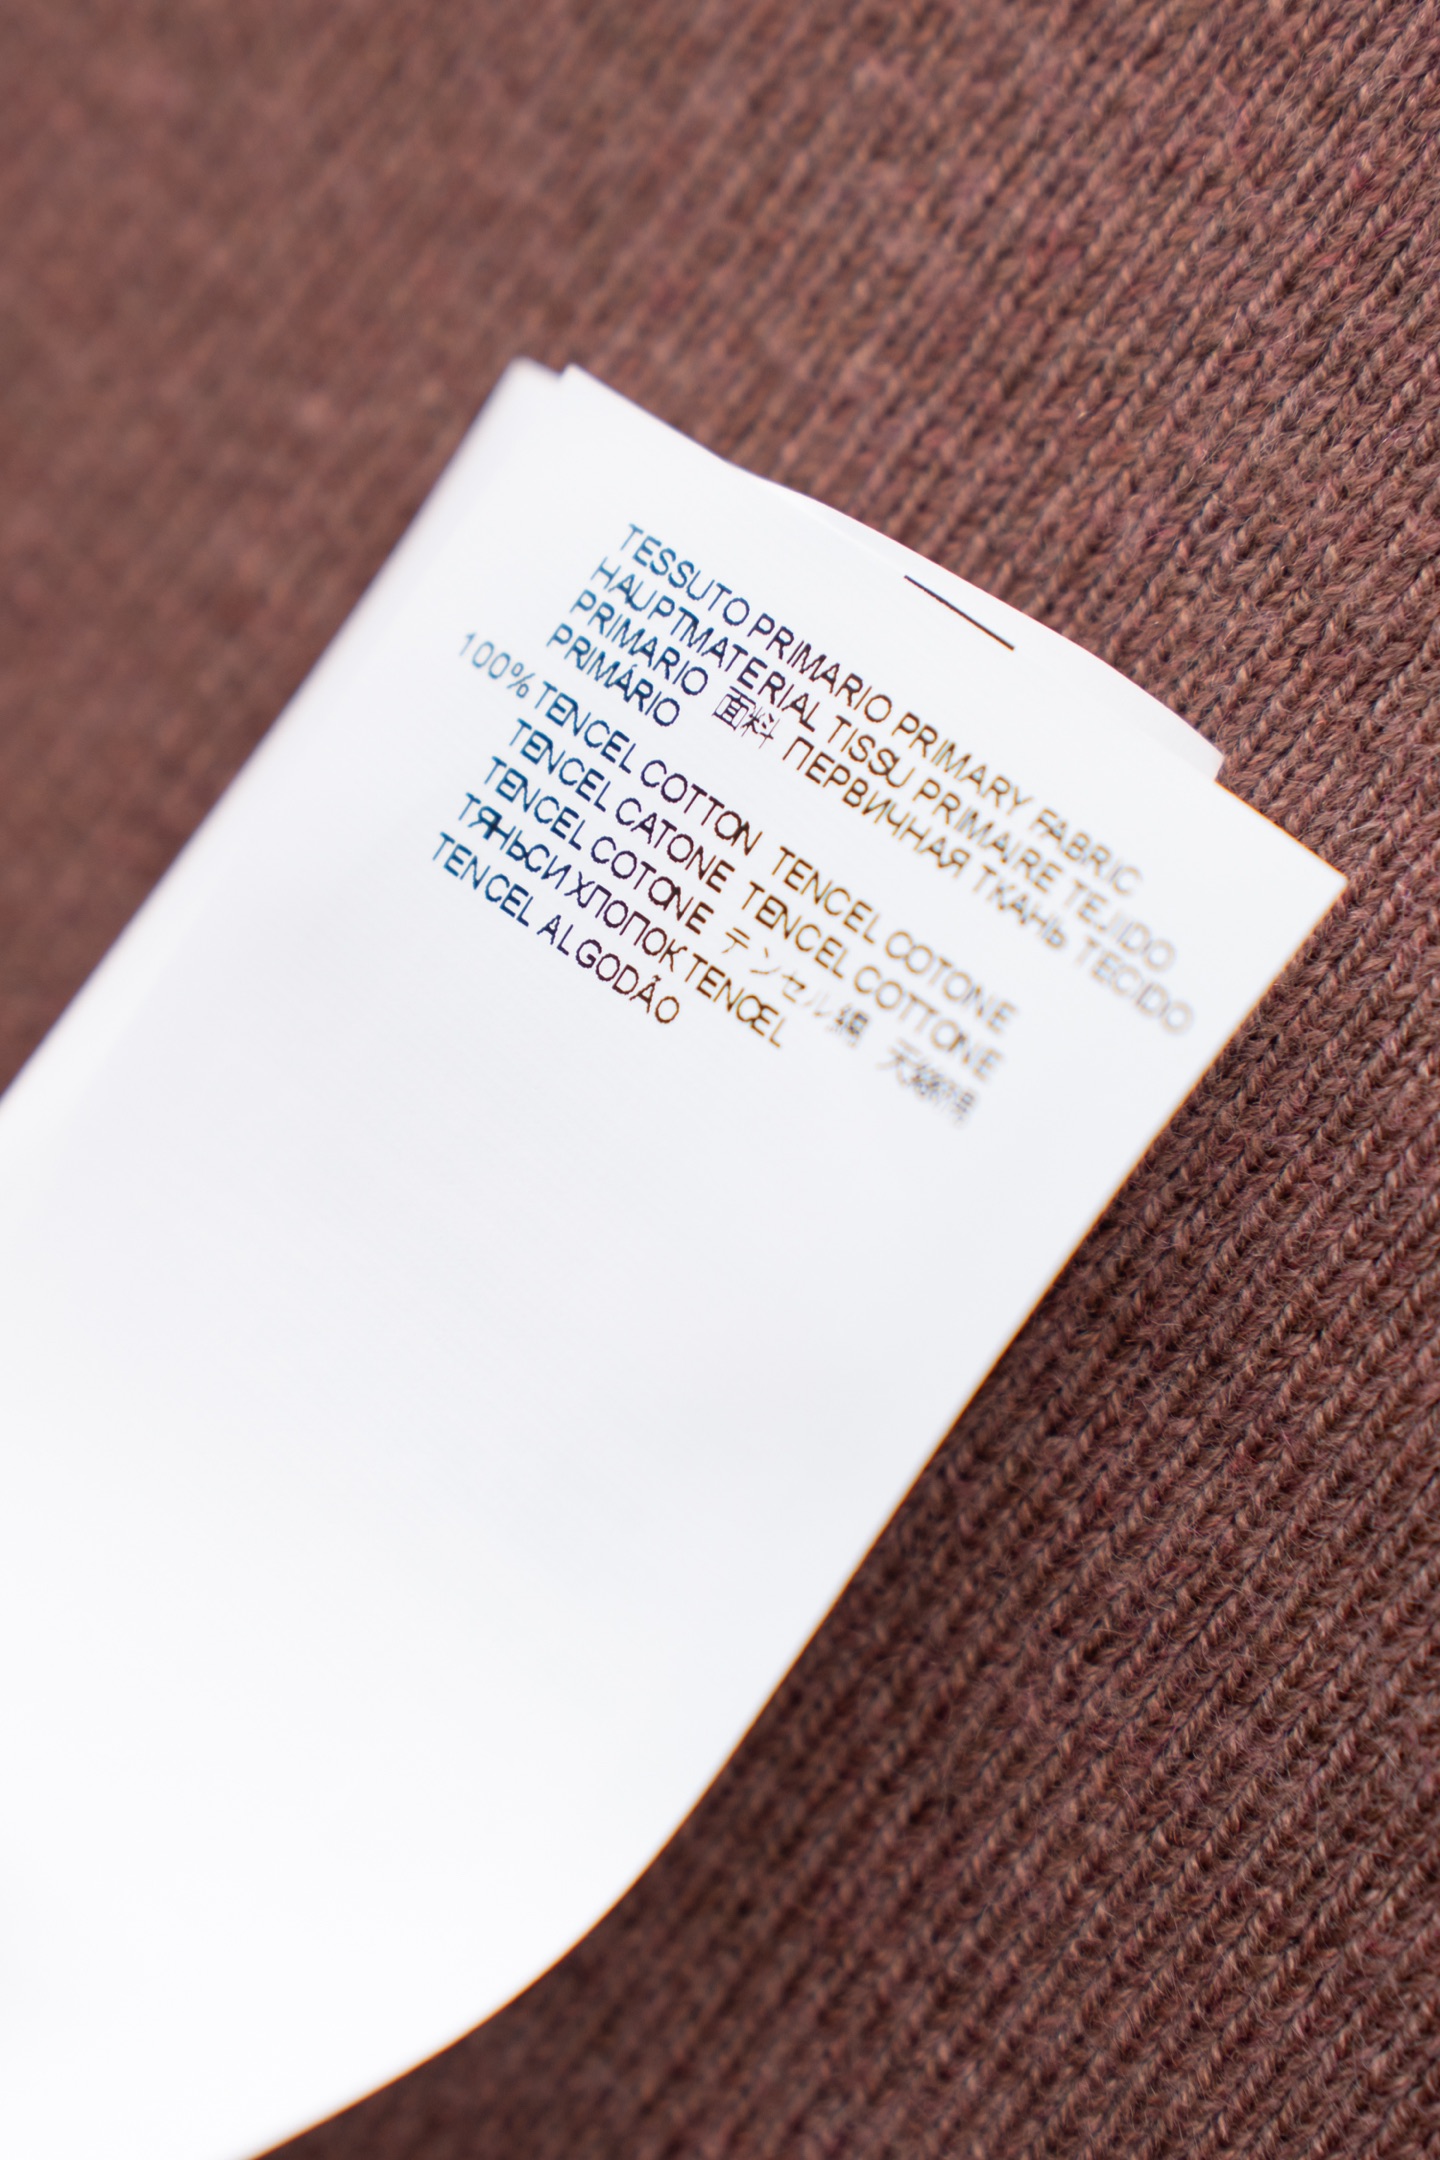 TESSUTO PRIMARIO PRIMARY FABRIC
HAUPTMATERIAL TISSU PRIMAIRE TEJIDO
PRIMARIO 面料 ПЕРВИЧНАЯ ТКАНЬ TECIDO
PRIMÁRIO
100% TENCEL COTTON TENCEL COTONE
TENCEL CATONE TENCEL COTTONE
TENCEL COTONE テンセル綿 天絲棉
ТЯНЬСИ ХЛОПОК TENCEL
TENCEL ALGODÃO